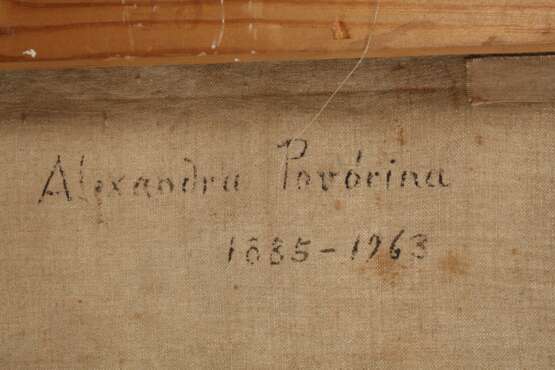 Alexandra Povórina
1885-1963